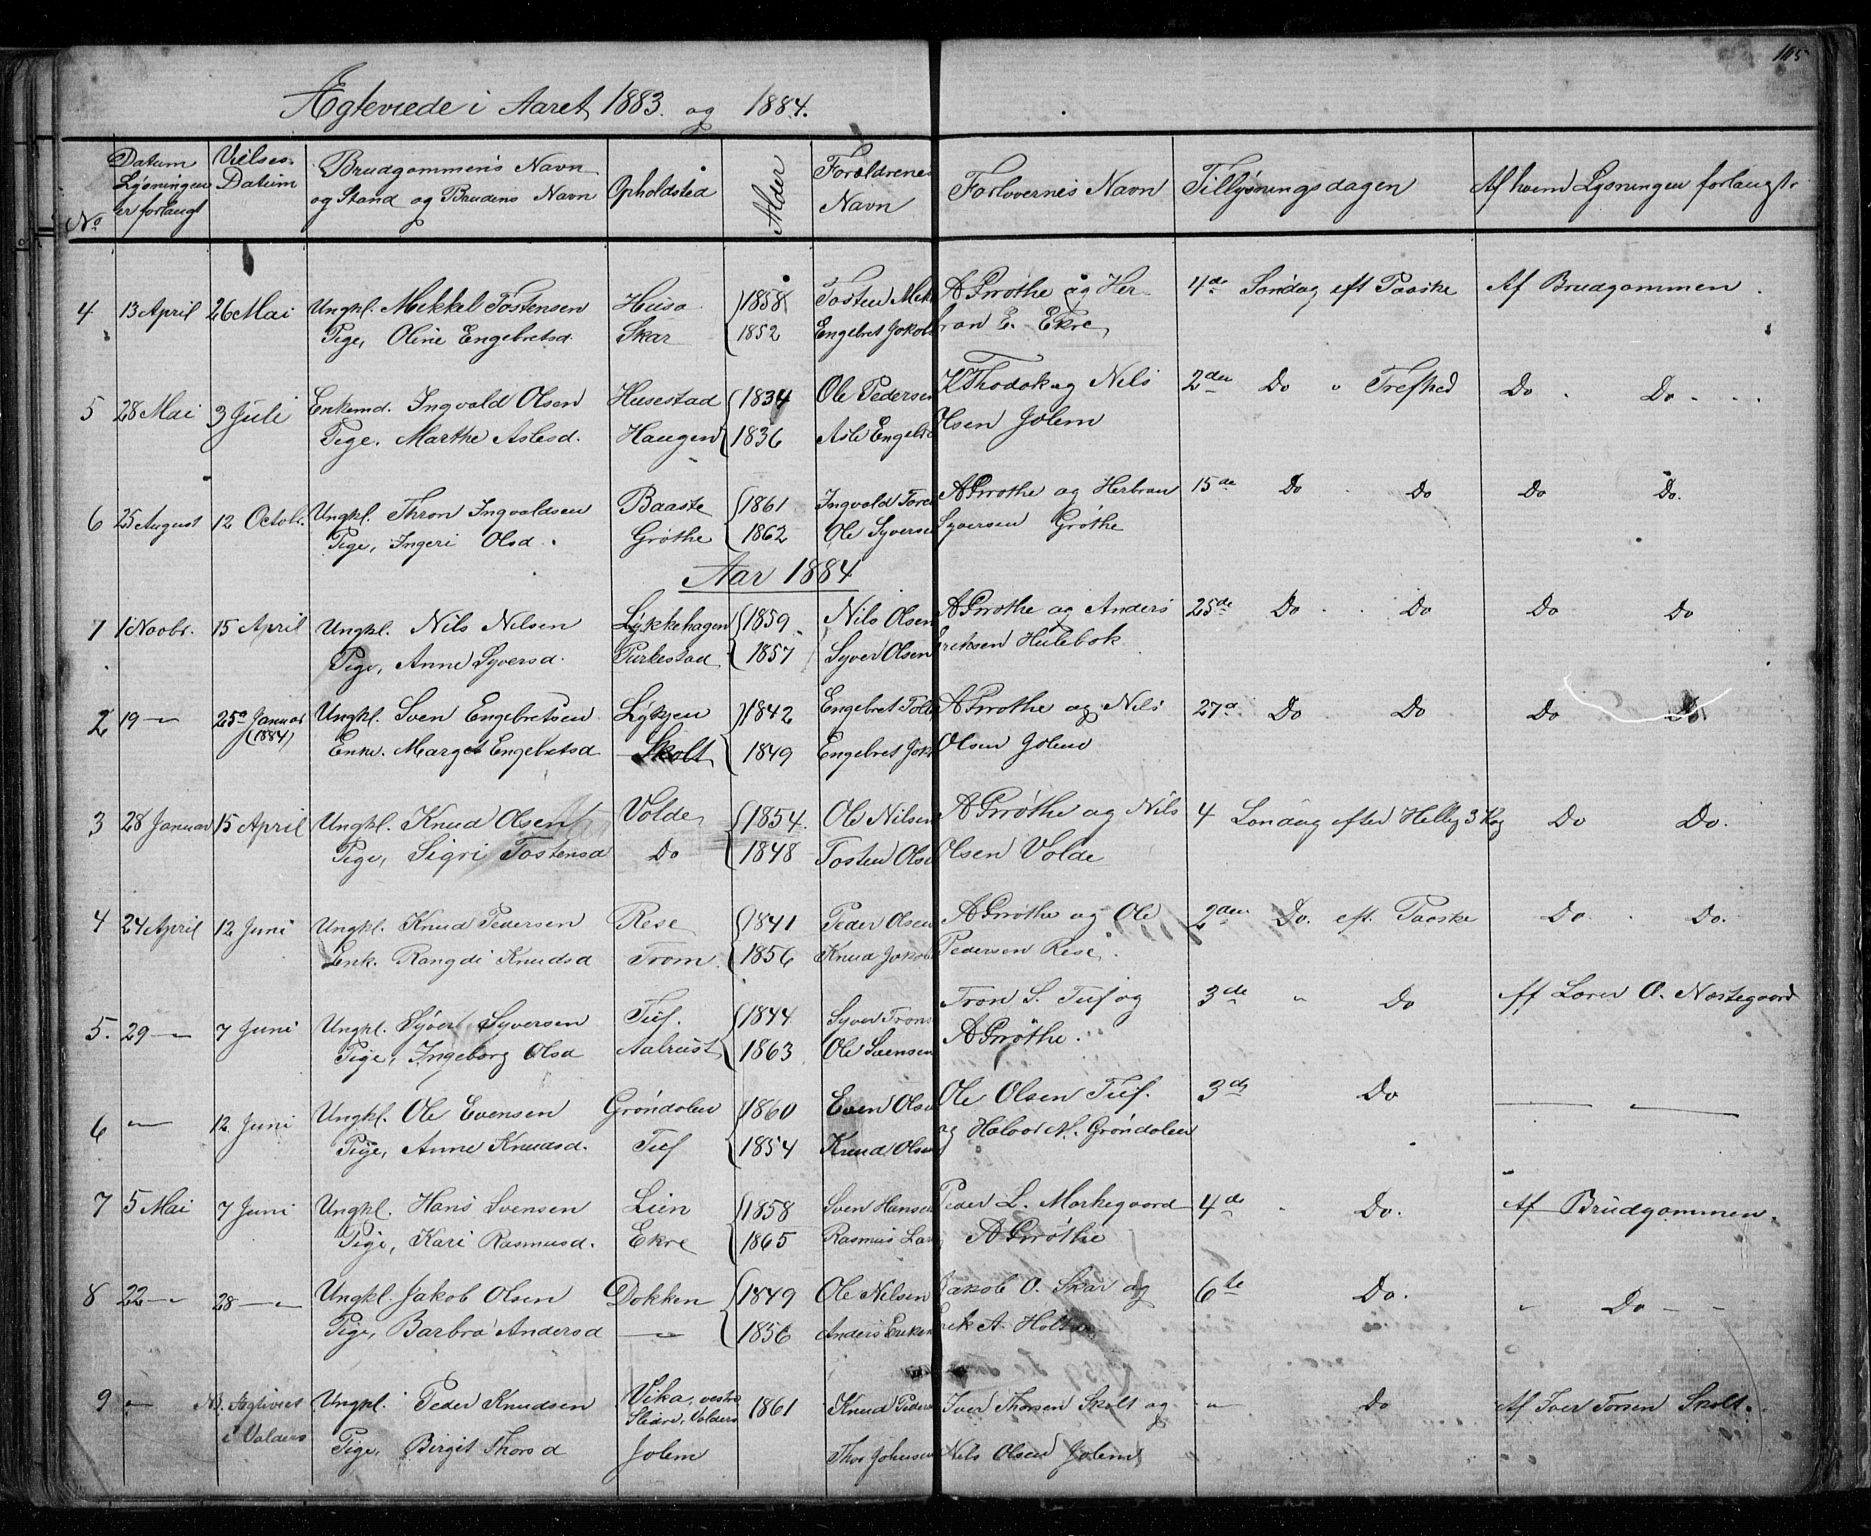 105
Ægteviede i Aaret 1883 og 1884.
No
Datum Lysningen er forlangt
Vielses-Datum
Brudgommens Navn og Stand og Brudens Navn
Opholdsted
Alder
Forældrenes Navn
Forlovernes Navn
Tillysningsdagen
Af hvem Lysningen forlangtes
4 13 April 26 Mai Ungkl. Mekkel Tostensen Huso 1858 Tosten Mek A Grøthe og Her- 4de Søndag eft Paaske Af Brudgommen.
Pige, Oline Engebretsd. Skar 1852 Engebret Jakob bran E. Ekre
5 28 Mai 3 Juli Enkemd. Ingvald Olsen Husestad 1834 Ole Pedersen K Thodok og Nils 2den Do " Trefhed Do Do
Pige, Marthe Aslesd. Haugen 1836 Asle Engebr Olsen Jølem
6 25 August 12 Octob. Ungkl. Thron Ingvaldsen Baaste 1861 Ingvald Tore A Grøthe og Herbran 15de Do Do Do Do.
Pige, Ingeri Olsd. Grøthe 1862 Ole Syverse Syversen Grøthe
Aar 1884
1 1 Novbr. 15 April Ungkl. Nils Nilsen Lykkehagen 1859 Nils Olsen A Grøthe og Anders 25de Do Do Do Do
Pige, Anne Syversd. Purkestad 1857 Syver Olsen Eriksen Hulebok
2 19 — 25de Januar (1884) Ungkl. Sven Engebretsen Lykjen 1842 Engebret Tolle A Grøthe og Nils 27de Do Do Do Do
Enke. Margit Engebretsd Skolt 1849 Engebret Jak Olsen Jølem
3 28 Januar 15 April Ungkl. Knud Olsen Volde 1854 Ole Nilsen A Grøthe og Nils 4 Søndag efter Hellig 3 Kog Do Do.
Pige, Sigri Tostensd Do 1848 Tosten Olse Olsen Volde
4 24 April 12 Juni Ungkl. Knud Pedersen Rese 1841 Peder Olsen A Grøthe og Ole 2den Do. eft. Paaske Do. Do.
Enk. Rangdi Knudsd Trøm 1856 Knud Jakob Pedersen Rese
5. 29 — 7 Juni Ungkl. Syver Syversen Tuf. 1844 Syver Trons Tron S. Tuf og 3de " Do Af Lærer O. Nestegaard
Pige, Ingeborg Olsd Aalrust 1863 Ole Svensen A Grøthe.
6 — 12 Juni Ungkl. Ole Evensen Grøndalen 1860 Even Olse Ole Olsen Tuf. 3de Do —
Pige, Anne Knudsd. Tuf 1854 Knud Olsen og Halvor N. Grøndalen
7 5 Mai 7 Juni Ungkl. Hans Svensen Lien 1858 Sven Hansen Peder L. Markegaard 4de Do. Af Brudgommen.
Pige, Kari Rasmusd. Ekre 1865 Rasmus Lar A Grøthe
8 22 — 28 — Ungkl. Jakob Olsen Dokken 1849 Ole Nilsen Jakob O. Skar og 6te Do. " Do — -
Pige, Barbra Andersd — 1856 Anders Eriksen Erik A. Holto
9 — NB. Ægtviet i Valders Ungkl. Peder Knudsen Vika, vestre Slidre, Valders 1861 Knud Peder Iver Thorsen Skolt og — Do Af Iver Torsen Skolt.
Pige, Birgit Thorsd Jølem Thor Johnsen Nils Olsen Jølem